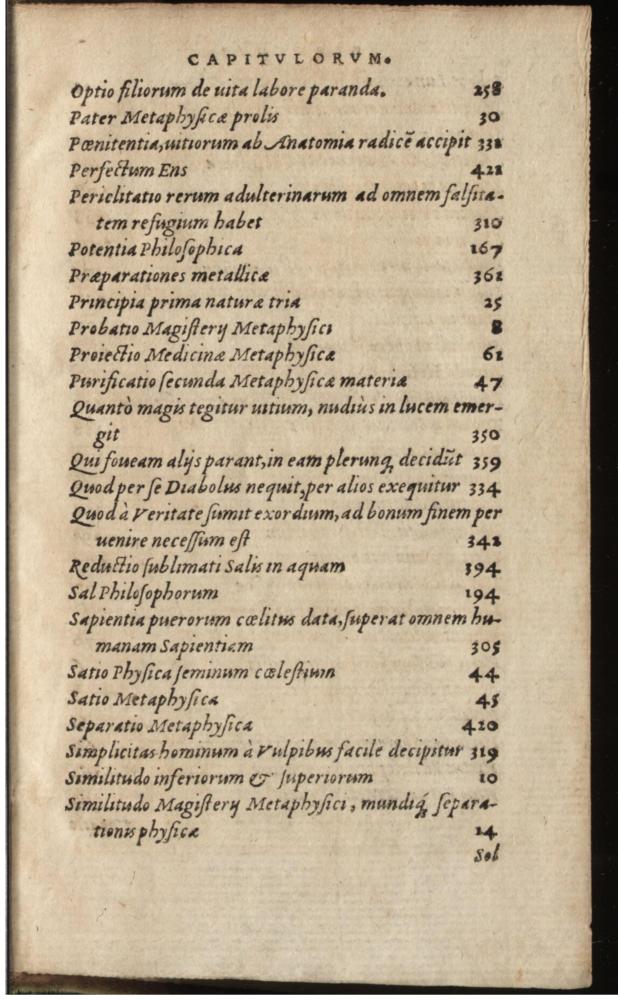 CAPITVLORVM.
Optio filiorum de uita labore paranda. 258
Pater Metaphysicæ prolis 30
Pœnitentia, uitiorum ab Anatomia radicẽ accipit 331
Perfectum Ens 421
Periclitatio rerum adulterinarum ad omnem falsita-
tem refugium habet 310
Potentia Philosophica 167
Præparationes metallicæ 361
Principia prima naturæ tria 25
Probatio Magisterij Metaphysici 8
Proiectio Medicinæ Metaphysicæ 61
Purificatio secunda Metaphysicæ materiæ 47
Quantò magis tegitur uitium, nudiùs in lucem emer-
git 350
Qui foueam alijs parant, in eam plerunq; decidũt 359
Quod per se Diabolus nequit, per alios exequitur 334
Quod à Veritate sumit exordium, ad bonum finem per
uenire necessum est 342
Reductio sublimati Salis in aquam 394
Sal Philosophorum 194
Sapientia puerorum cœlitus data, superat omnem hu-
manam Sapientiam 305
Satio Physica seminum cœlestium 44
Satio Metaphysica 45
Separatio Metaphysica 420
Simplicitas hominum à Vulpibus facile decipitur 319
Similitudo inferiorum & superiorum 10
Similitudo Magisterij Metaphysici, mundiq́; separa-
tionis physicæ 14
Sol